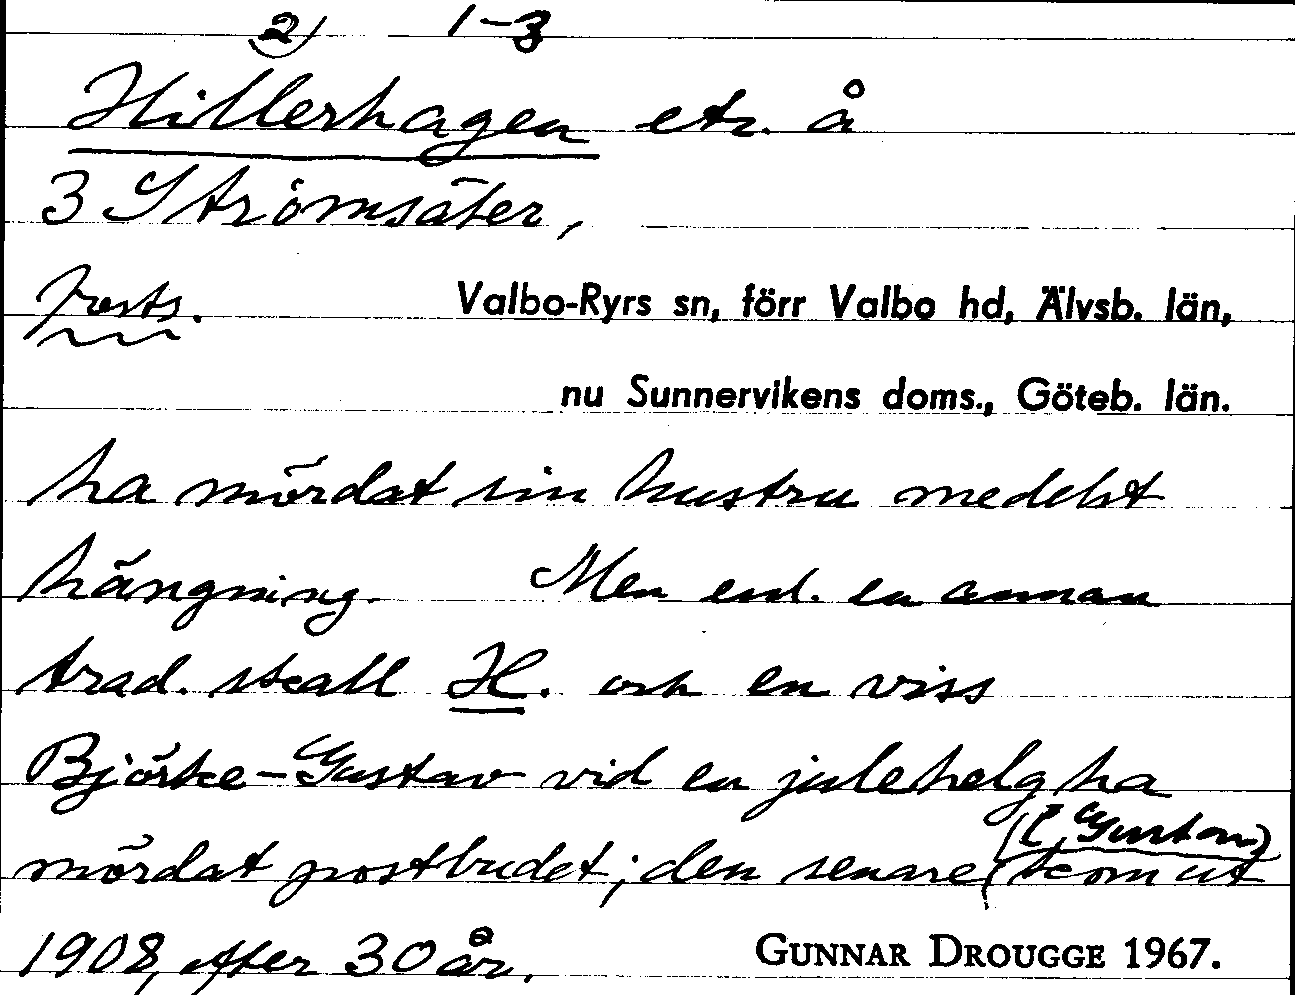 2) 1-3
Hillerhagen etc. å
3 Strömsäter,
Forts. Valbo-Ryrs sn, förr Valbo hd, Älvsb. län,
nu Sunnervikens doms., Göteb. län.
ha mördat sin hustru medelst
hängning. Men enl. en annan
trad. skall H. och en viss
Björke-Gustav vid en julehelg ha
(Gustav)
mördat postbudet; den senare kom ut
1908, efter 30 år. GUNNAR DROUGGE 1967.